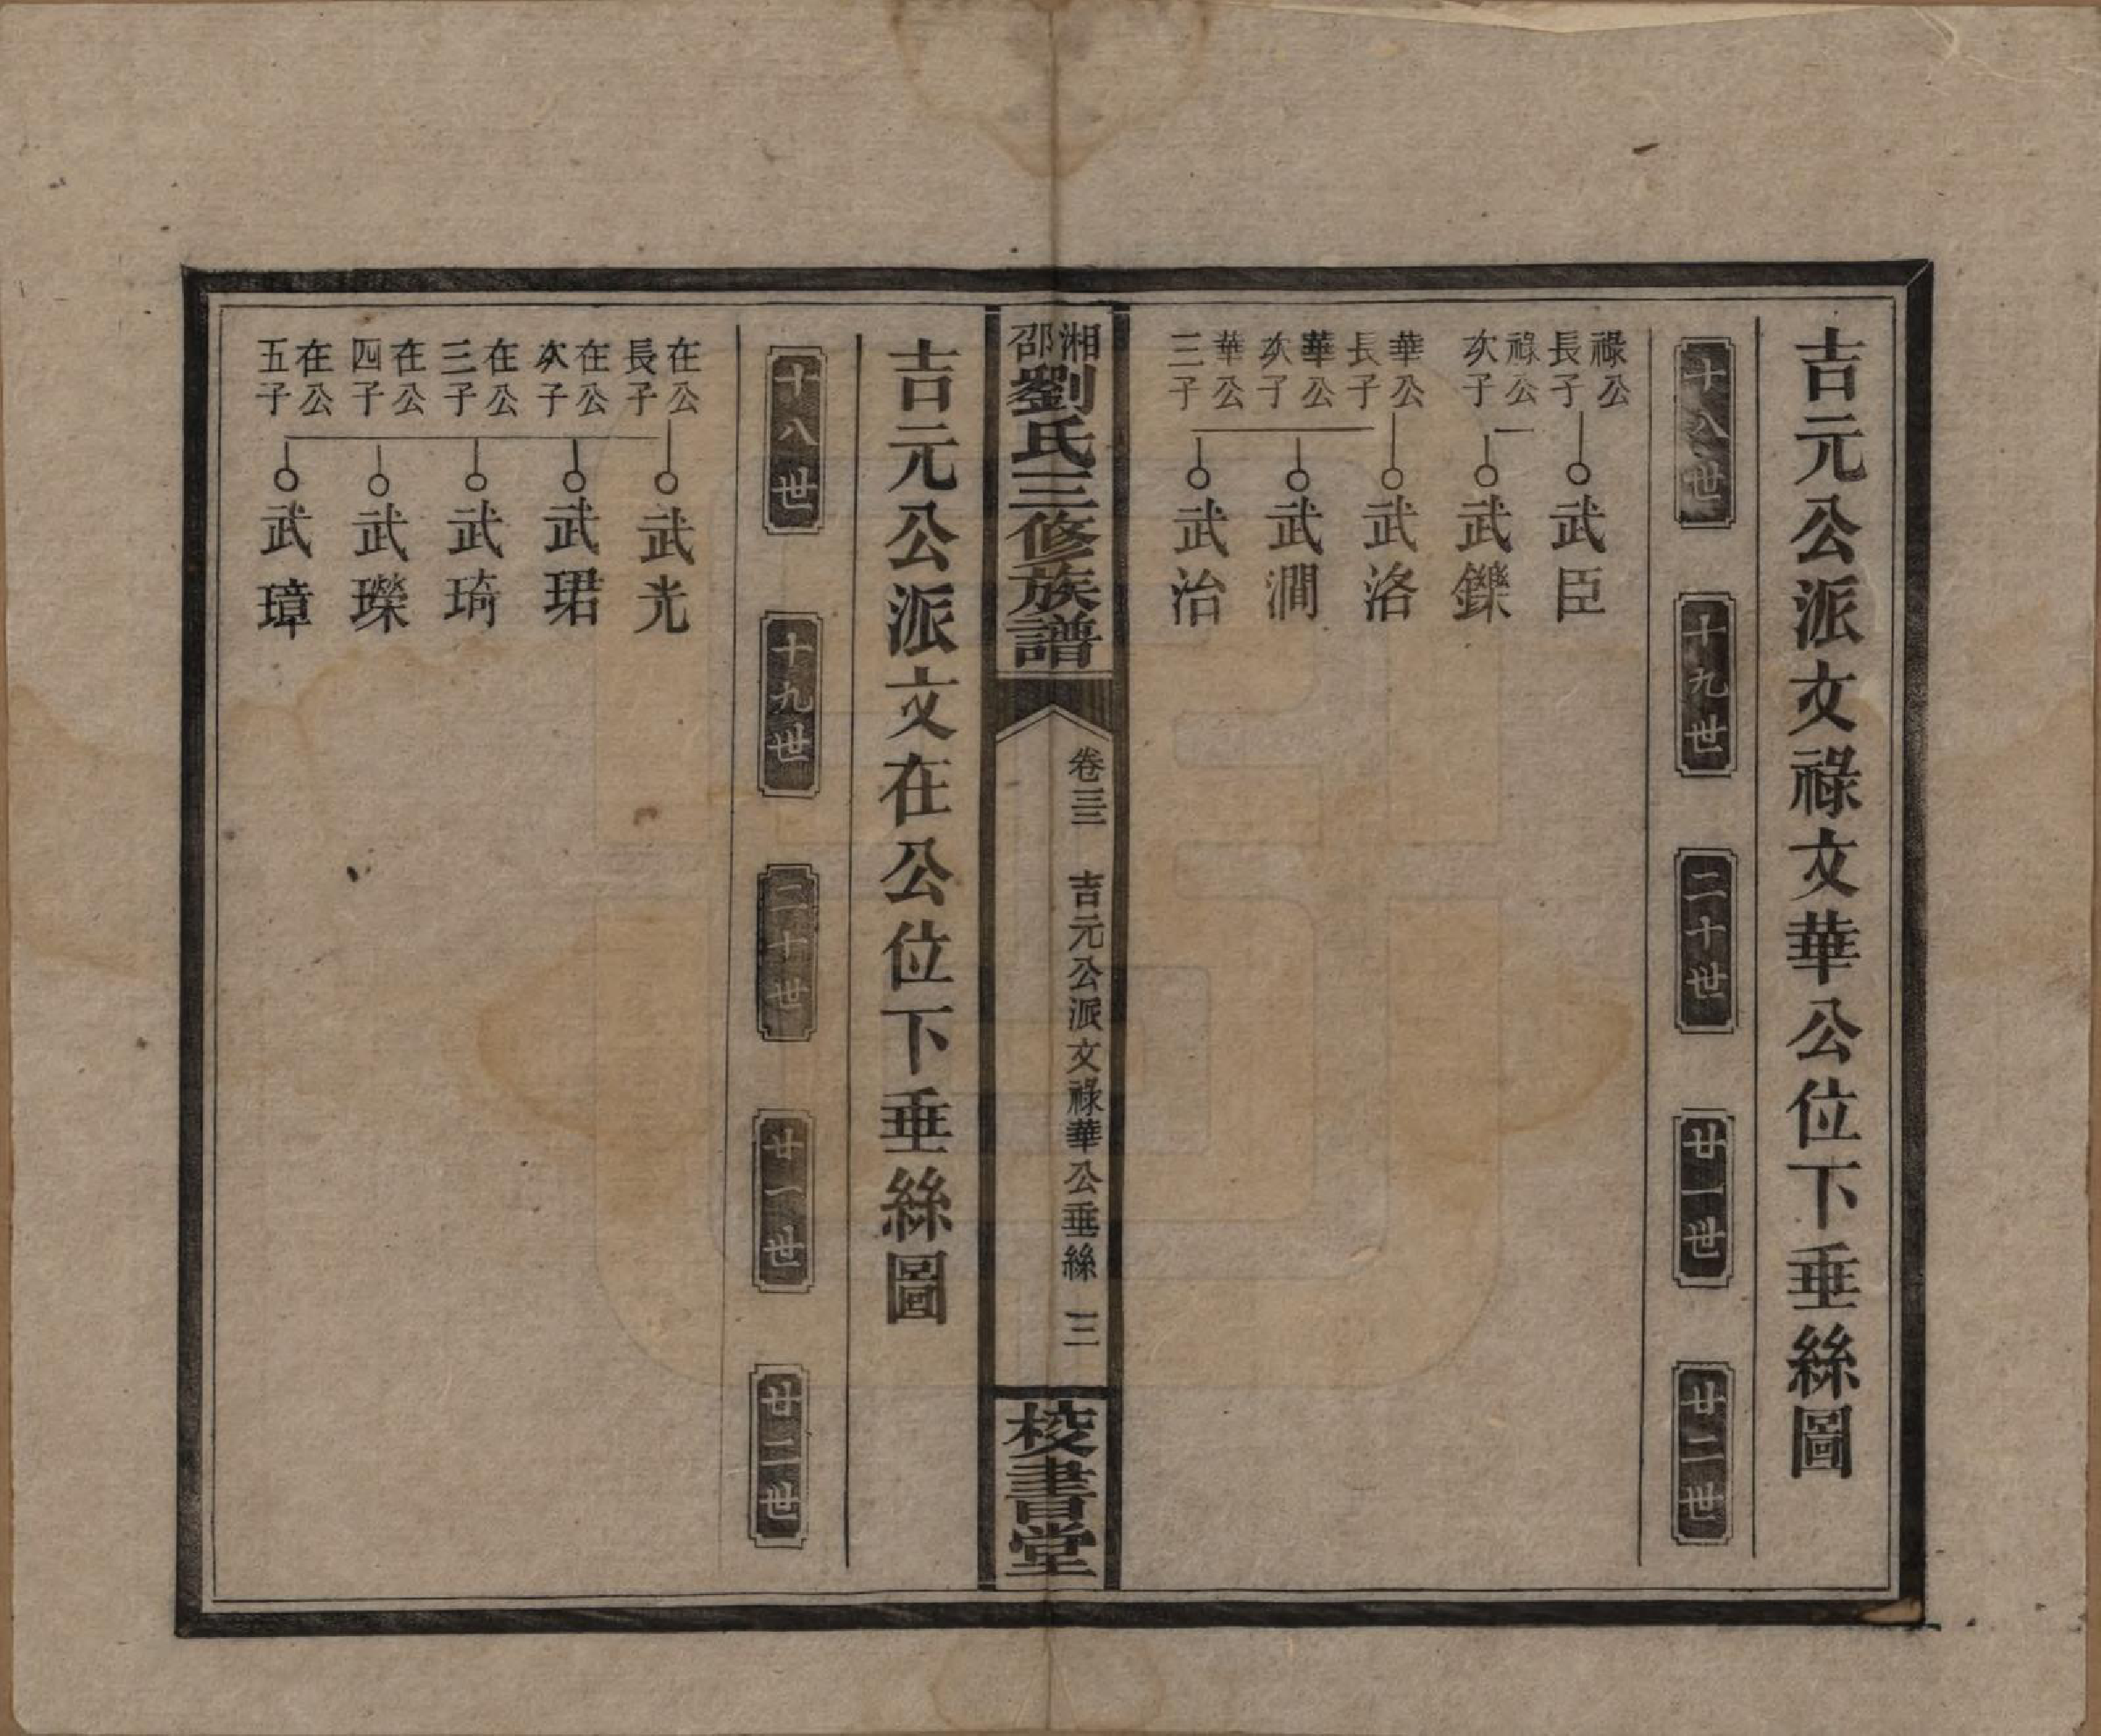 吉元公派文祿文華公位下垂絲圖
十八世 十九世 二十世 廿一世 廿二世
祿公長子 武臣
祿公次子 武鑠
華公長子 武洛
華公次子 武澗
華公三子 武治
湘邵劉氏三修族譜 卷三 吉元公派文祿華公垂絲 三 校書堂
吉元公派文在公位下垂絲圖
十八世 十九世 二十世 廿一世 廿二世
在公長子 武光
在公次子 武珺
在公三子 武琦
在公四子 武瓅
在公五子 武璋